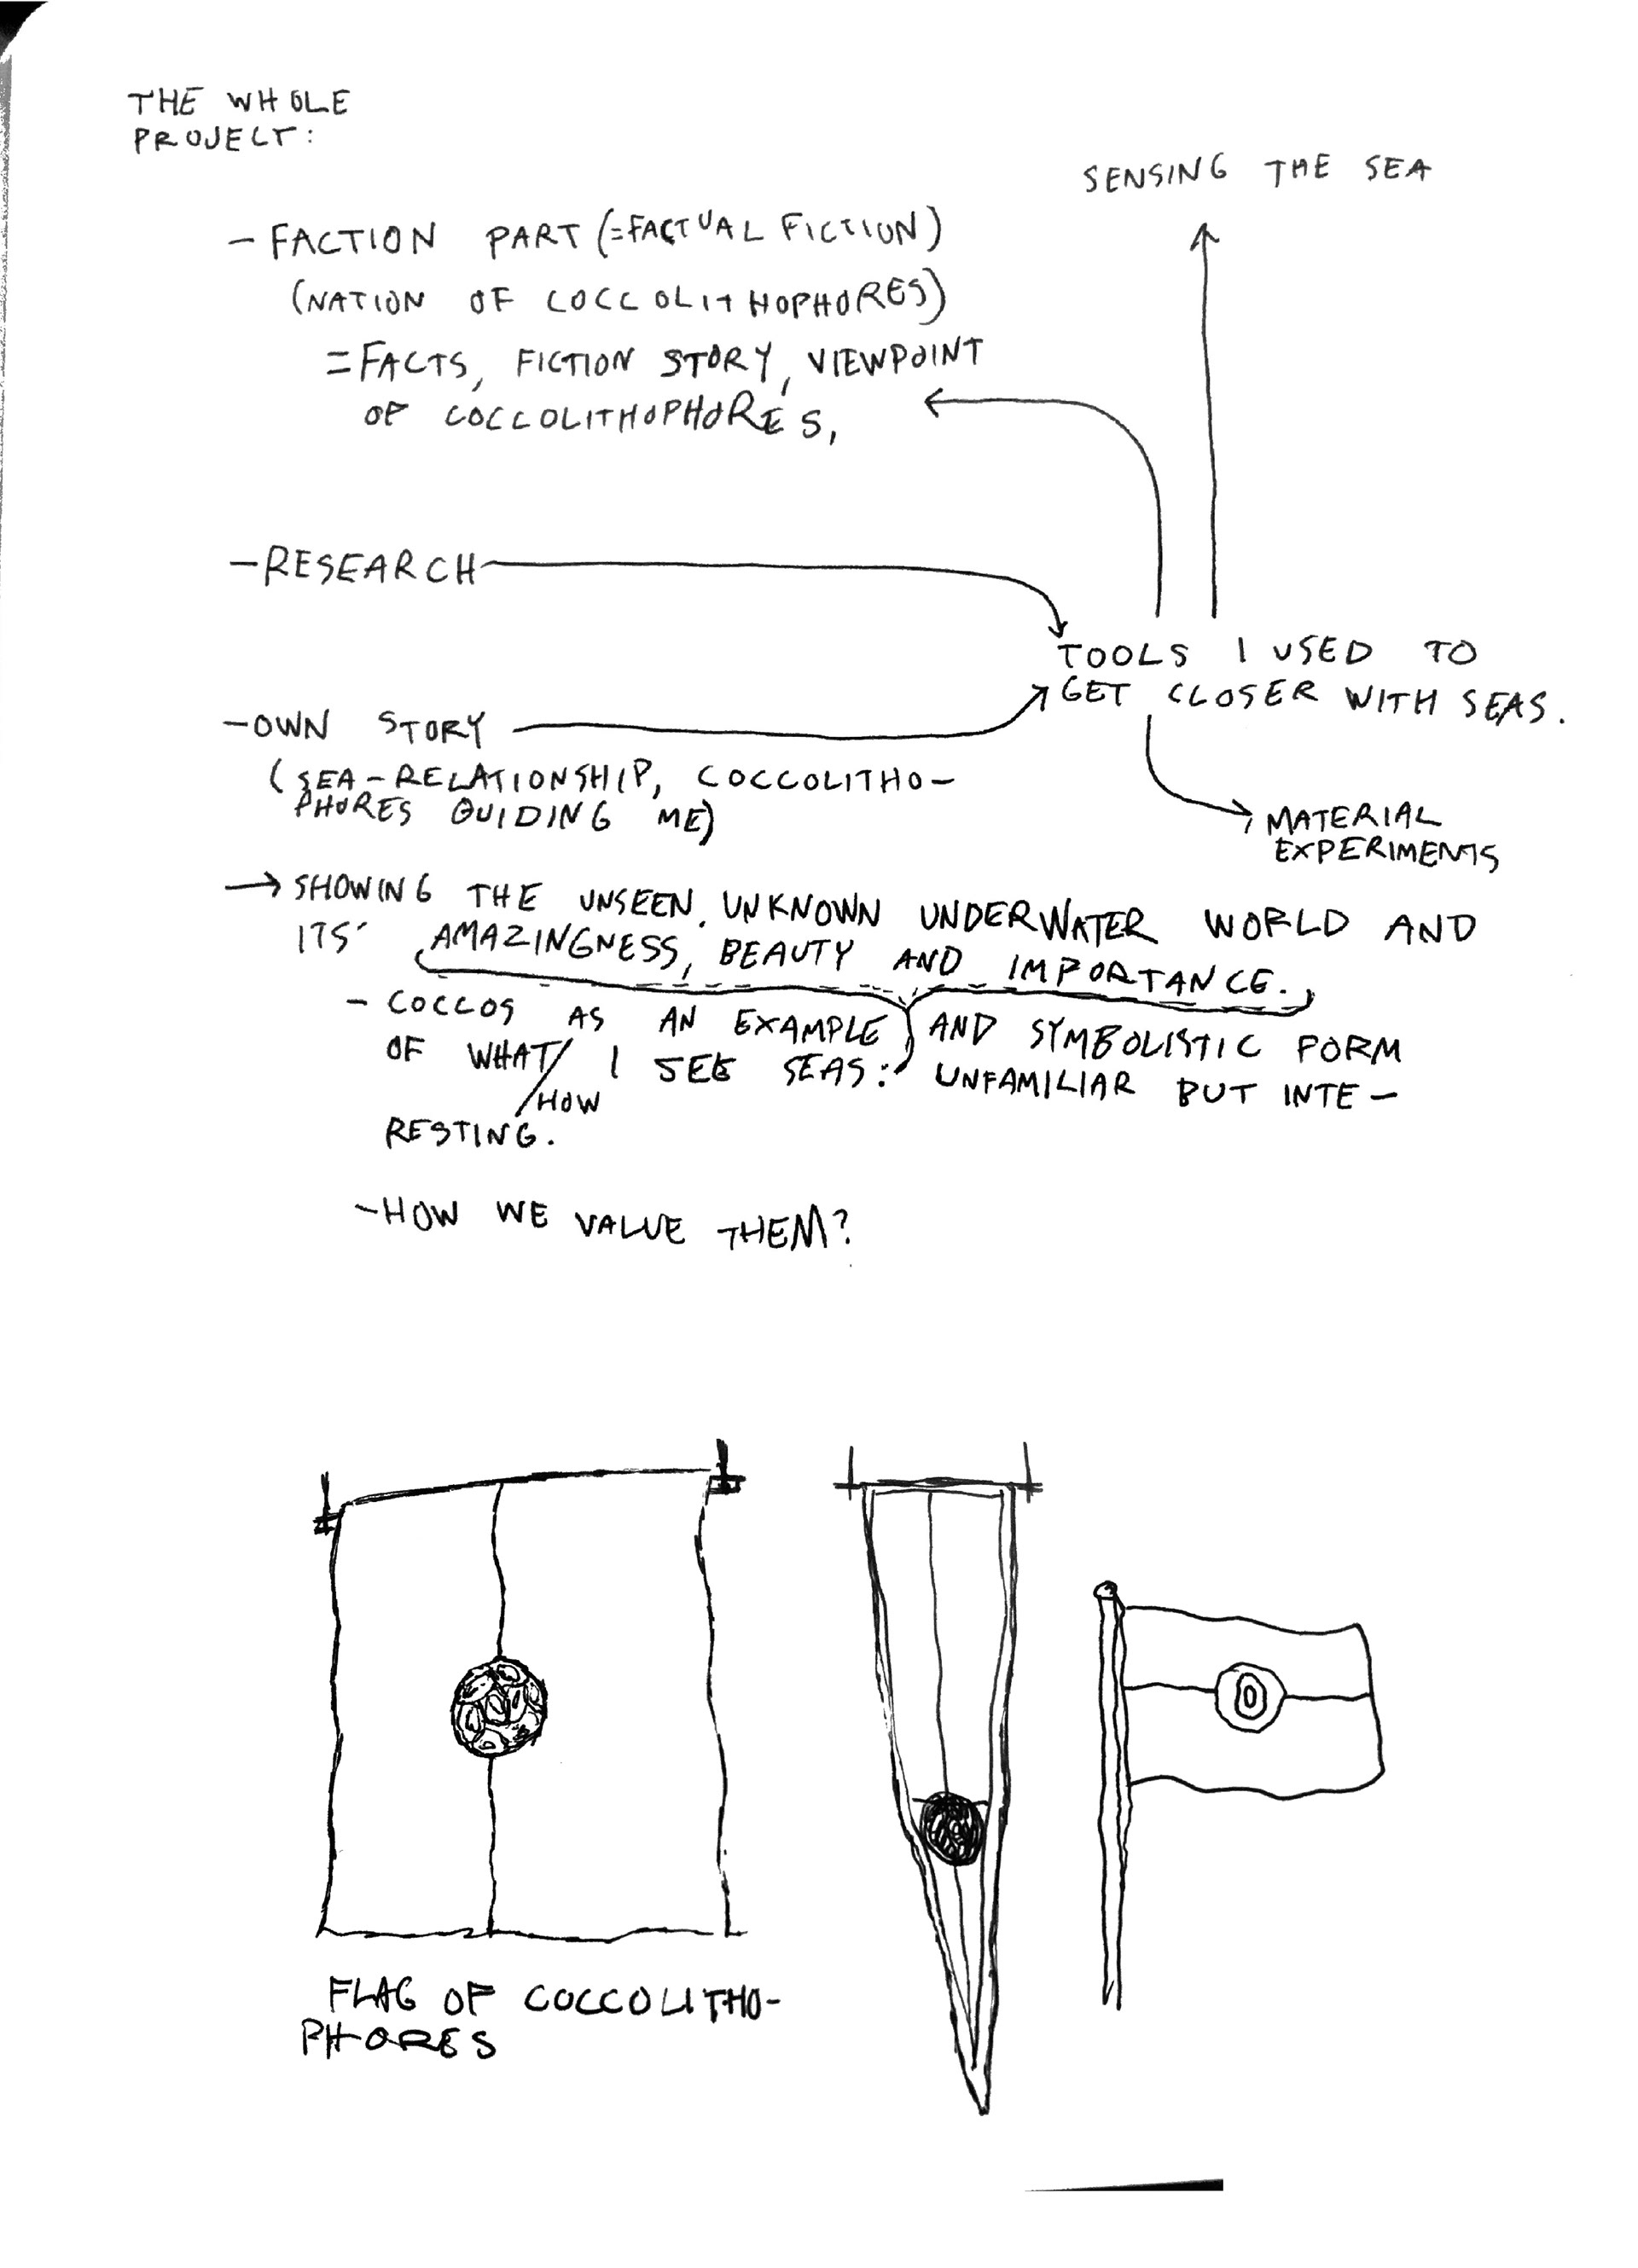 THE WHOLE
PROJECT:
SENSING THE SEA
- FACTION PART (=FACTUAL FICTION)
(NATION OF COCCOLITHOPHORES)
= FACTS, FICTION STORY, VIEWPOINT
OF COCCOLITHOPHORE'S,
- RESEARCH
TOOLS I USED TO
GET CLOSER WITH SEAS.
- OWN STORY
(SEA-RELATIONSHIP, COCCOLITHO-
PHORES GUIDING ME)
MATERIAL
EXPERIMENTS
→ SHOWING THE UNSEEN, UNKNOWN UNDERWATER WORLD AND
ITS' AMAZINGNESS, BEAUTY AND IMPORTANCE.
- COCCOS AS AN EXAMPLE AND SYMBOLISTIC FORM
OF WHAT/HOW I SEE SEAS: UNFAMILIAR BUT INTE-
RESTING.
- HOW WE VALUE THEM?
FLAG OF COCCOLITHO-
PHORES